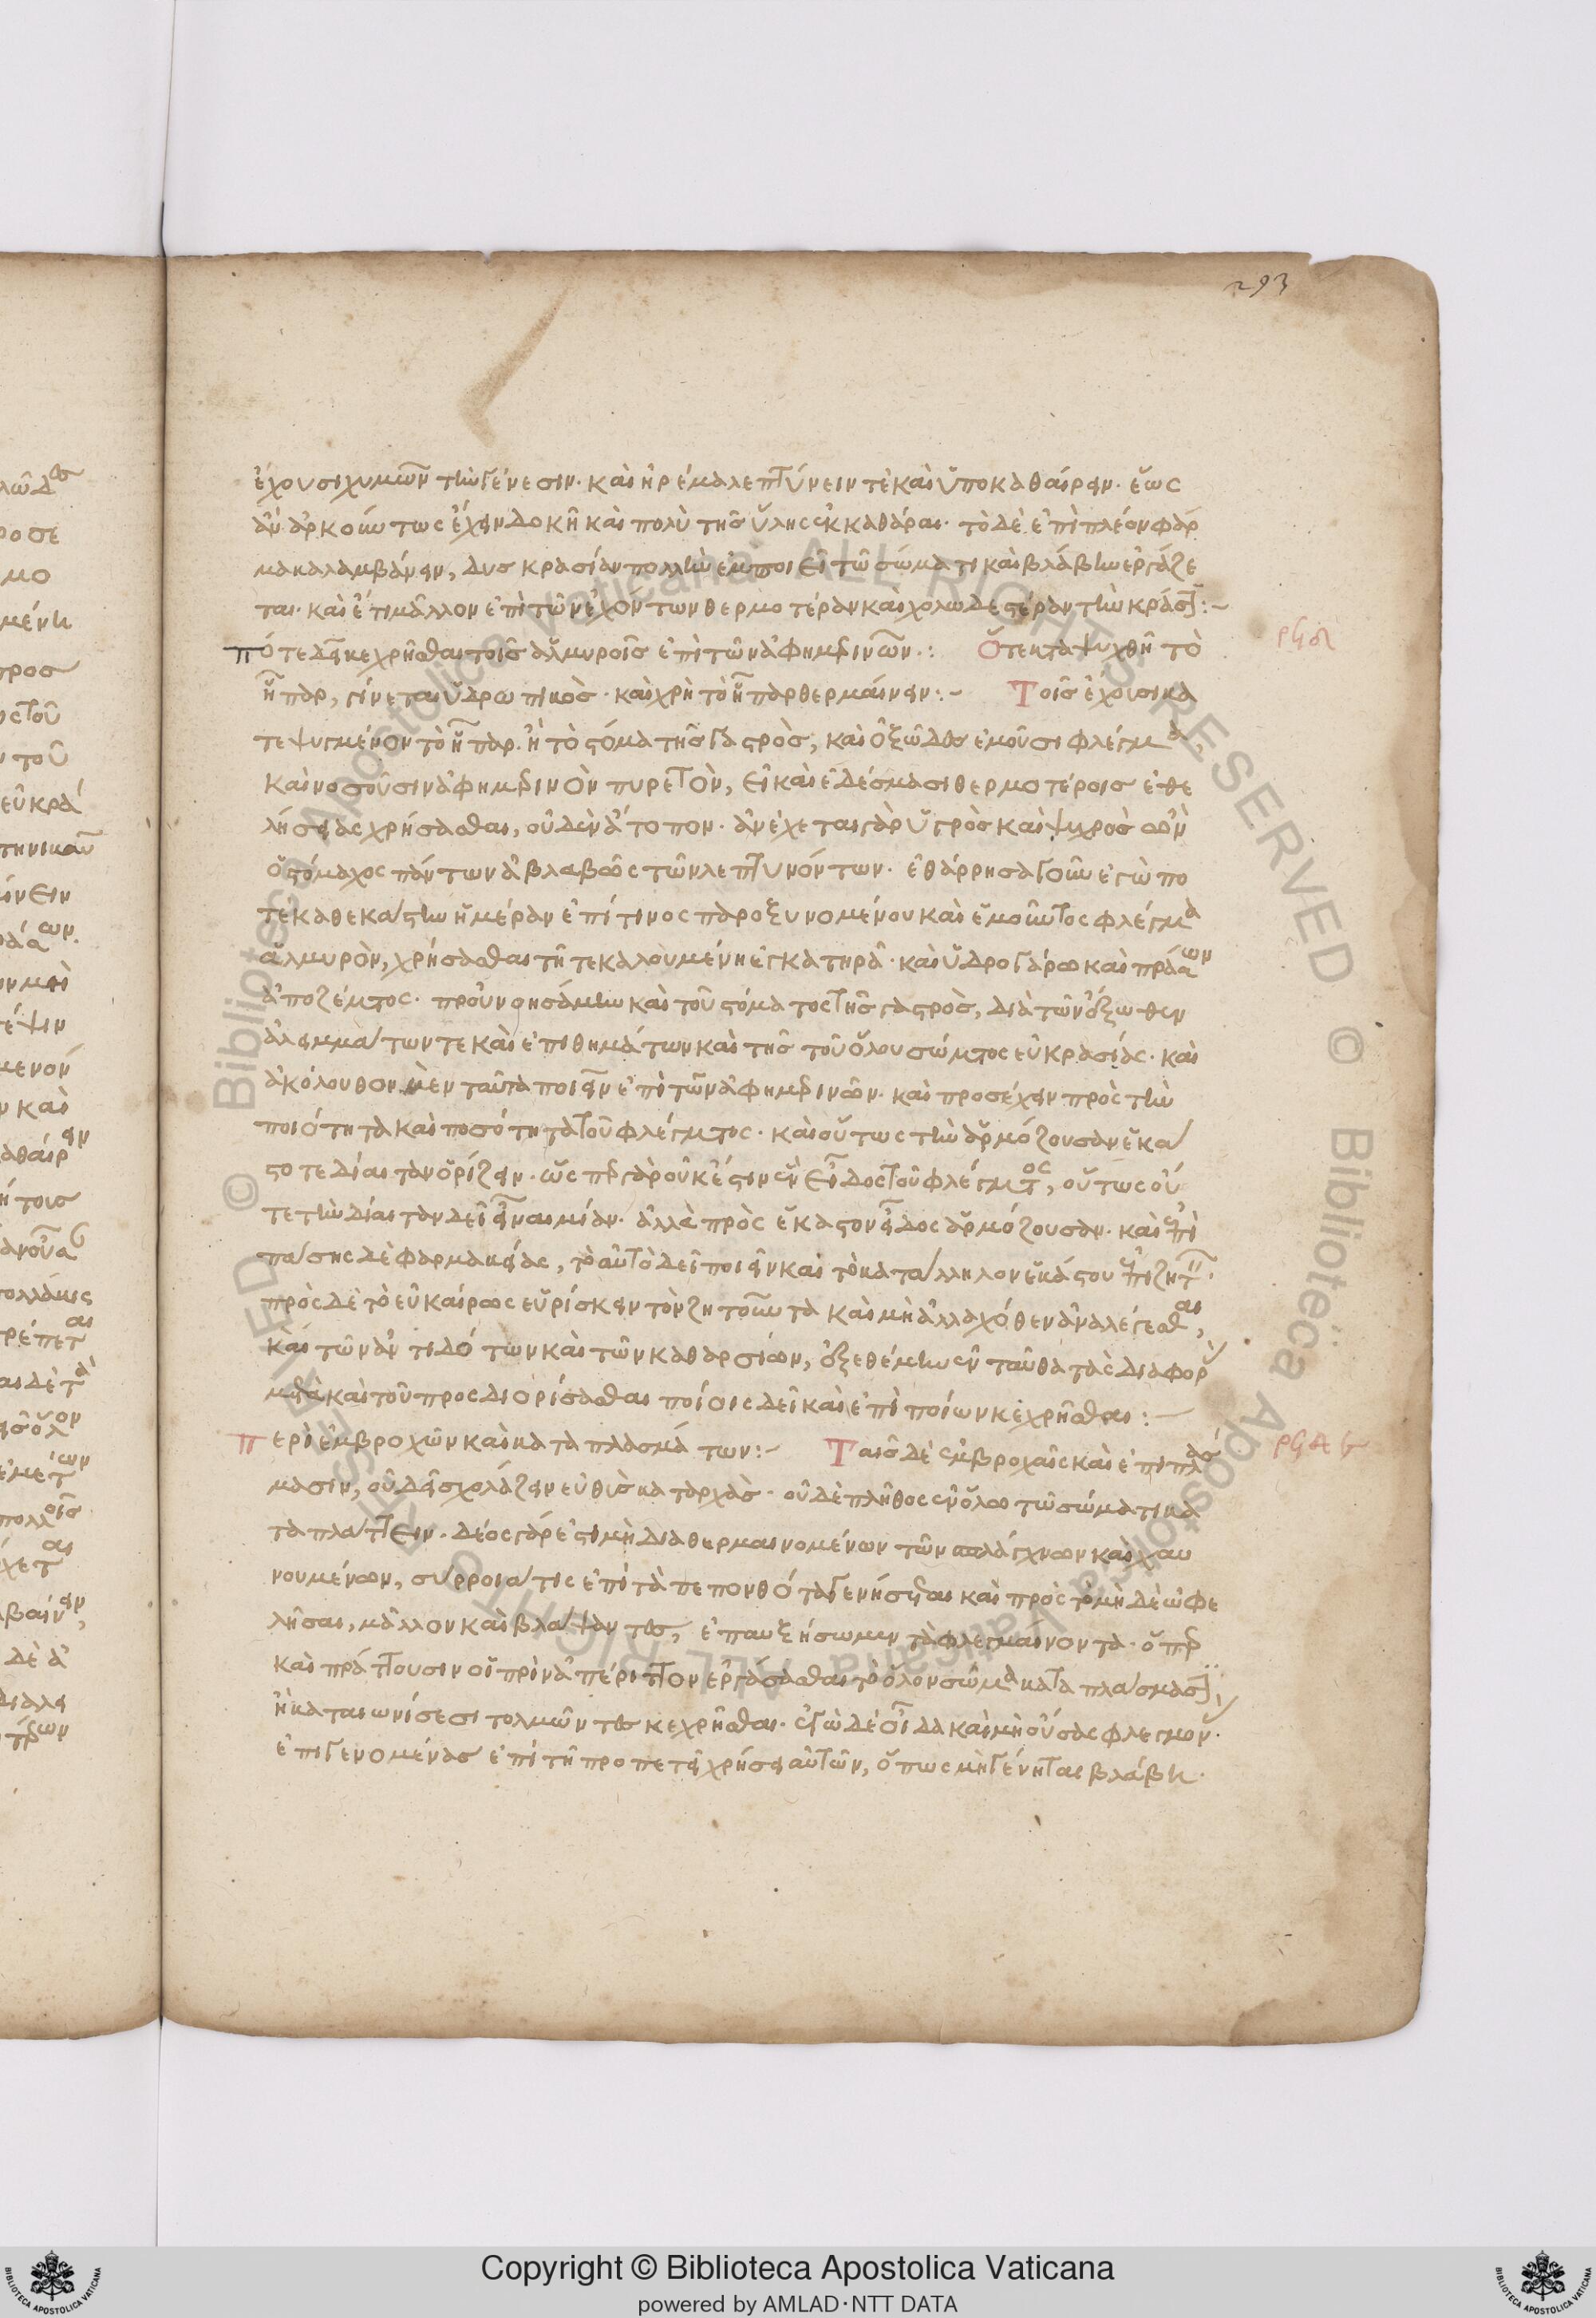 293
ἔχουσι χυμῶν τὴν γένεσιν· καὶ ἠρέμα λεπτύνειν τε καὶ ὑποκαθαίρειν· ἕως
ἂν ἀρκούντως ἔχειν δοκῇ καὶ πολὺ τῆς ὕλης ἐκκαθάραι· τὸ δὲ ἐπιπλέον φάρ
μακα λαμβάνειν, δυσκρασίαν πολλὴν ἐμποιεῖ τῷ σώματι καὶ βλάβην ἐργάζε
ται· καὶ ἔτι μᾶλλον ἐπὶ τῶν ἐχόντων θερμοτέραν καὶ χολωδεστέραν τὴν κρᾶσιν:~
πότε δεῖ κεχρῆσθαι τοῖς ἁλμυροῖς ἐπὶ τῶν ἀφημερινῶν·: Ὅτε καταψυχθῇ τὸ
ἧπαρ, γίνεται ὑδρωπικὸς· καὶ χρὴ τὸ ἧπαρ θερμαίνειν:~ Τοῖς ἔχουσι κα
τεψυγμένον τὸ ἧπαρ· ἢ τὸ στόμα τῆς γαστρὸς, καὶ ὀξῶδες ἐμοῦσι φλέγμα,
καὶ νοσοῦσιν ἀφημερινὸν πυρετὸν, εἰ καὶ ἐδέσμασι θερμοτέροις ἐθε
λήσειας χρήσασθαι, οὐδὲν ἄτοπον· ἀνέχεται γὰρ ὑγρὸς καὶ ψυχρὸς ὢν
ὁ στόμαχος πάντων ἀβλαβῶς τῶν λεπτυνόντων· ἐθάρρησα γοῦν ἐγώ πο
τε καθεκάστην ἡμέραν ἐπί τινος παροξυνομένου καὶ ἐμοῦντος φλέγμα
ἁλμυρὸν, χρήσασθαι τῇ τε καλουμένῃ ἐγκατηρᾷ· καὶ ὑδρογάρω καὶ πράσων
ἀποζέματος· προὐνοησάμην καὶ τοῦ στόματος τῆς γαστρὸς, διὰ τῶν ἔξωθεν
ἀλειμμάτων τε καὶ ἐπιθημάτων καὶ τῆς τοῦ ὅλου σώματος εὐκρασίας· καὶ
ἀκόλουθον μὲν ταῦτα ποιεῖν ἐπὶ τῶν ἀφημερινῶν· καὶ προσέχειν πρὸς τὴν
ποιότητα καὶ ποσότητα τοῦ φλέγματος· καὶ οὕτως τὴν ἁρμόζουσαν ἑκά
στοτε δίαιταν ὁρίζειν· ὥσπερ γὰρ οὐκ ἔστιν ἓν εἶδος τοῦ φλέγματος, οὕτως οὔ
τε τὴν δίαιταν δεῖ εἶναι μίαν· ἀλλὰ πρὸς ἕκαστον εἶδος ἁρμόζουσαν· καὶ ἐπὶ
πάσης δὲ φαρμακείας, τὸ αὐτὸ δεῖ ποιεῖν καὶ τὸ κατάλληλον ἑκάστου ἐπιζητεῖν·
πρὸς δὲ τὸ εὐκαίρως εὑρίσκειν τὸν ζητοῦντα καὶ μὴ ἀλλαχόθεν ἀναλέγεσθαι,
καὶ τῶν ἀντιδότων καὶ τῶν καθαρσίων, ἐξεθέμην ἐνταῦθα τὰς διαφορὰς
μετὰ καὶ τοῦ προσδιορίσασθαι ποίοις δεῖ καὶ ἐπὶ ποίων κεχρῆσθαι:~
Περὶ ἐμβροχῶν καὶ καταπλασμάτων:~ Ταῖς δὲ ἐμβροχαῖς καὶ ἐπιπλάσ
μασιν, οὐ δεῖ σχολάζειν εὐθὺς καταρχὰς· οὐδὲ πλῆθος ἐν ὅλω τῷ σώματι κα
ταπλάττειν· δέος γάρ ἐστι μὴ διαθερμαινομένων τῶν σπλάγχνων καὶ χαυ
νουμένων, συρροιά τις ἐπὶ τὰ πεπονθότα γενήσεται καὶ πρὸς τὸ μηδὲ ὠφε
λῆσαι, μᾶλλον καὶ βλάψαντες, ἐπαυξήσωμεν τὰ φλεγμαίνοντα· ὅπερ
καὶ πράττουσιν οἱ πρὶν ἀπέριττον ἐργάσασθαι τὸ ὅλον σῶμα καταπλάσμασιν,
ἢ καταιωνίσεσι τολμῶντες κεχρῆσθαι· ἐγὼ δὲ οἶδα καὶ μὴ οὔσας φλεγμον·
ἐπιγενομένας ἐπὶ τῇ προπετεῖ χρήσει αὐτῶν, ὅπως μὴ γένηται βλάβη·
Copyright © Biblioteca Apostolica Vaticana
powered by AMLAD·NTT DATA